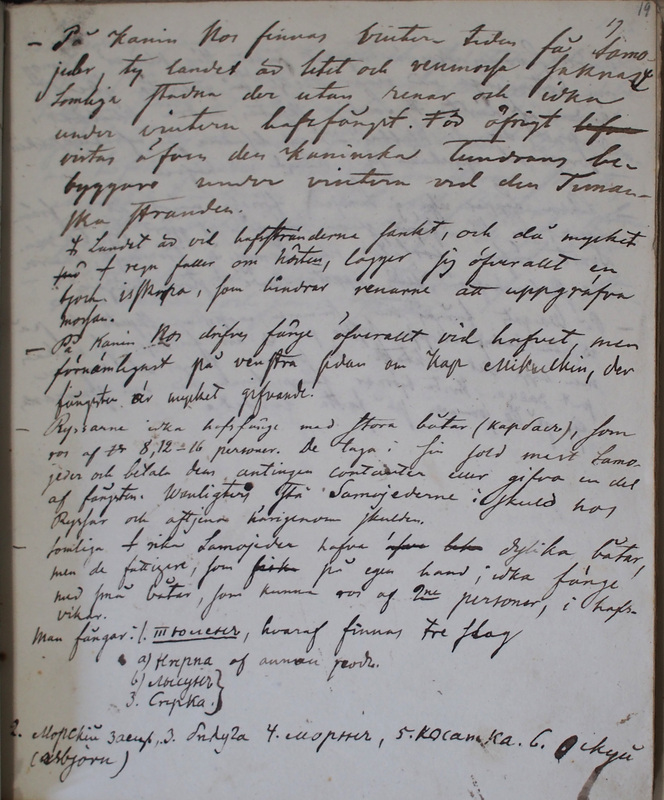 19
17
– På Kanin Nos finnas vintern tiden få Samo-
jeder, ty landet är litet och renmossa saknas.
Somliga stadna der utan renar och idka
under vintern hafsfångst. För öfrigt
vistas äfven den Kaninska Tundrans be-
byggare under vintern vid den Timan-
ska stranden.
Landet är vid hafsstränderna sankt, och då mycket
regn faller om hösten, lägger sig öfverallt en
tjock isskorpa, som hindrar renarne att uppgräfva
mossan.
– På Kanin Nos drifves fänge öfverallt vid hafvet, men
förnämligast på venstra sidan om Kap Mikulkin, der
fångsten är mycket gifvande.
– Ryssarne idka hafsfänge med stora båtar (карбасъ), som
ros af 8, 12–16 personer. De taga i sin sold mest Samo-
jeder och betala dem antingen contanter eller gifva en del
af fångsten. Vanligtvis stå Samojederne i skuld hos
Ryssar och aftjena härigenom skulden.
– Somliga rika Samojeder hafva dylika båtar,
men de fattigare, som på egen hand idka fänge
med små båtar, som kunna ros af 2ne personer, i hafs-
vikar.
Man fångar: 1. тюлень, hvaraf finnas tre slag
a) Нерпа af annan
b) Лысунъ
3. Сѣрка.
2. Морской заецъ, 3. бѣлуга 4. моржъ, 5. косатка. 6.
(isbjörn)